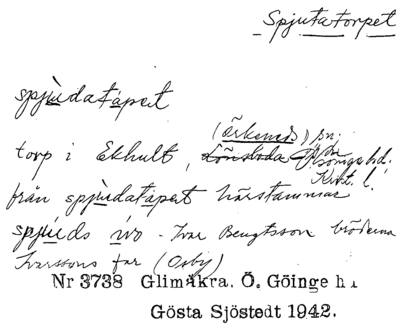 Spjutatorpet
spjùdatápeət
(Örkeneds) sn:
torp i Ekhult, Lönsboda Ö. Göinge hd.
Krist. l.
från spjùdatápeət härstammar
spjúds ivo - Ivar Bengtsson bröderna
Ivarssons far (Osby)
Nr 3738 Glimåkra. Ö. Göinge h
Gösta Sjöstedt 1942.